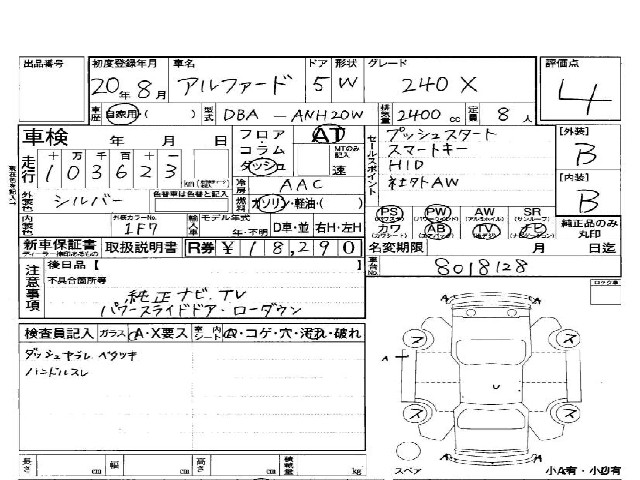 出品番号 初度登録年月 車名 ドア 形状 グレード 評価点
20年 8月 アルファード 5 W 240 X 4
車歴 自家用・( ) 型式 DBA - ANH20W 排気量 2400 cc 定員 8 人
車検 年 月 日 フロア・コラム ダッシュ AT MTのみ記入 速
走行 十 万 千 百 十 一
103623 km
セールスポイント
プッシュスタート
スマートキー
HID
社外AW
[外装] B
[内装] B
外装色 シルバー 色替車は色替と記入
冷房 AAC
燃料 ガソリン・軽油・( )
内装色 外装カラーNo. 1F7 輸入車 モデル年式 年・不明 D車・並 右H・左H
PS (パワステ) PW (パワーウインド) AW (アルミホイル) SR (サンルーフ)
カワ (カワシート) AB (エアバッグ) TV ナビ (ナビゲーション)
純正品のみ丸印
新車保証書 取扱説明書 R券 ¥18,290
名変期限 月 日迄
車台No. 8018128
注意事項
後日品【 】
不具合箇所等
純正ナビ、TV
パワースライドドア・ローダウン
検査員記入 ガラス A・X要ス 室内 シート A・コゲ・穴・汚れ・破れ
ダッシュヤラレ ベタツキ
ハンドルスレ
A A
A
U
A A
スペア
小A有・小U有
長さ cm 幅 cm 高さ cm 積載量 kg